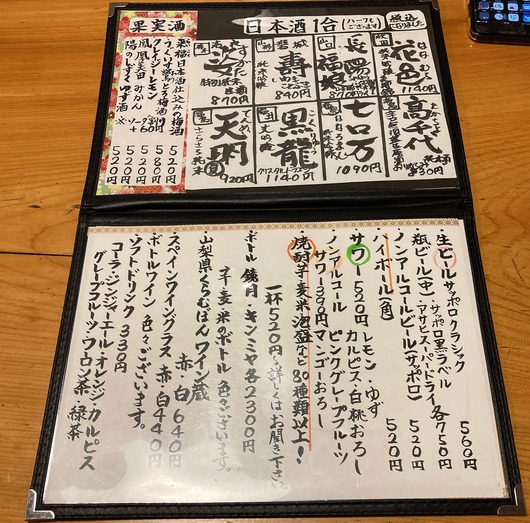 日本酒1合
(ハーフもございます)
税込
花邑
1140円
長陽福娘
壽
840円
870円
高千代
830円
七ロ万
1090円
黒龍
クリスタルドラゴン
1140円
天明
さらさら純米
920円
果実酒
来福日本酒仕込みの梅酒 520円
うぐいすとろ梅酒
クレイジーレモン
鳳凰美田 みかん
陽のしずく ゆず酒 520円
※ソーダ割り +60円
580円
520円
520円
・生ビール サッポロクラシック 560円
・瓶ビール(中)・サッポロ黒ラベル
・アサヒスーパードライ 各750円
・ノンアルコールビール(サッポロ) 520円
・ハイボール(角) 520円
・サワー 520円 レモン・ゆず
カルピス・白桃おろし
・ノンアルコールサワー390円 ピンクグレープフルーツ
マンゴーおろし
・焼酎 芋・麦・米・泡盛など80種類以上!
一杯520円〜詳しくはお聞き下さい
ボトル 鏡月・キンミヤ 各2300円
芋・麦・米のボトル 色々ございます。
・山梨県くらむぼんワイン 蔵
赤・白 640円
・スペインワイングラス 赤・白 440円
・ボトルワイン 色々ございます。
・ソフトドリンク 330円
コーラ・ジンジャーエール・オレンジ・カルピス
グレープフルーツ・ウーロン茶・緑茶